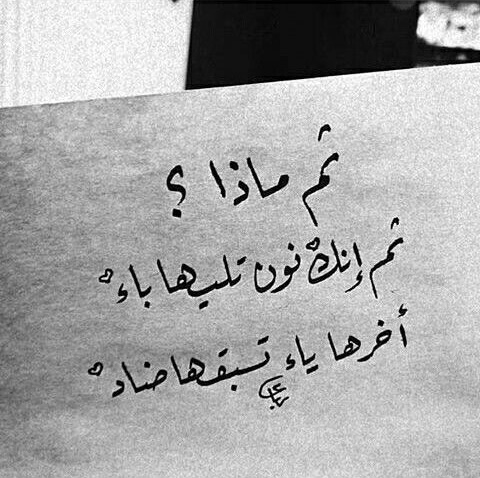 ثم ماذا ؟
ثم إنك نون تليها باء
أخرها ياء تسبقها ضاد